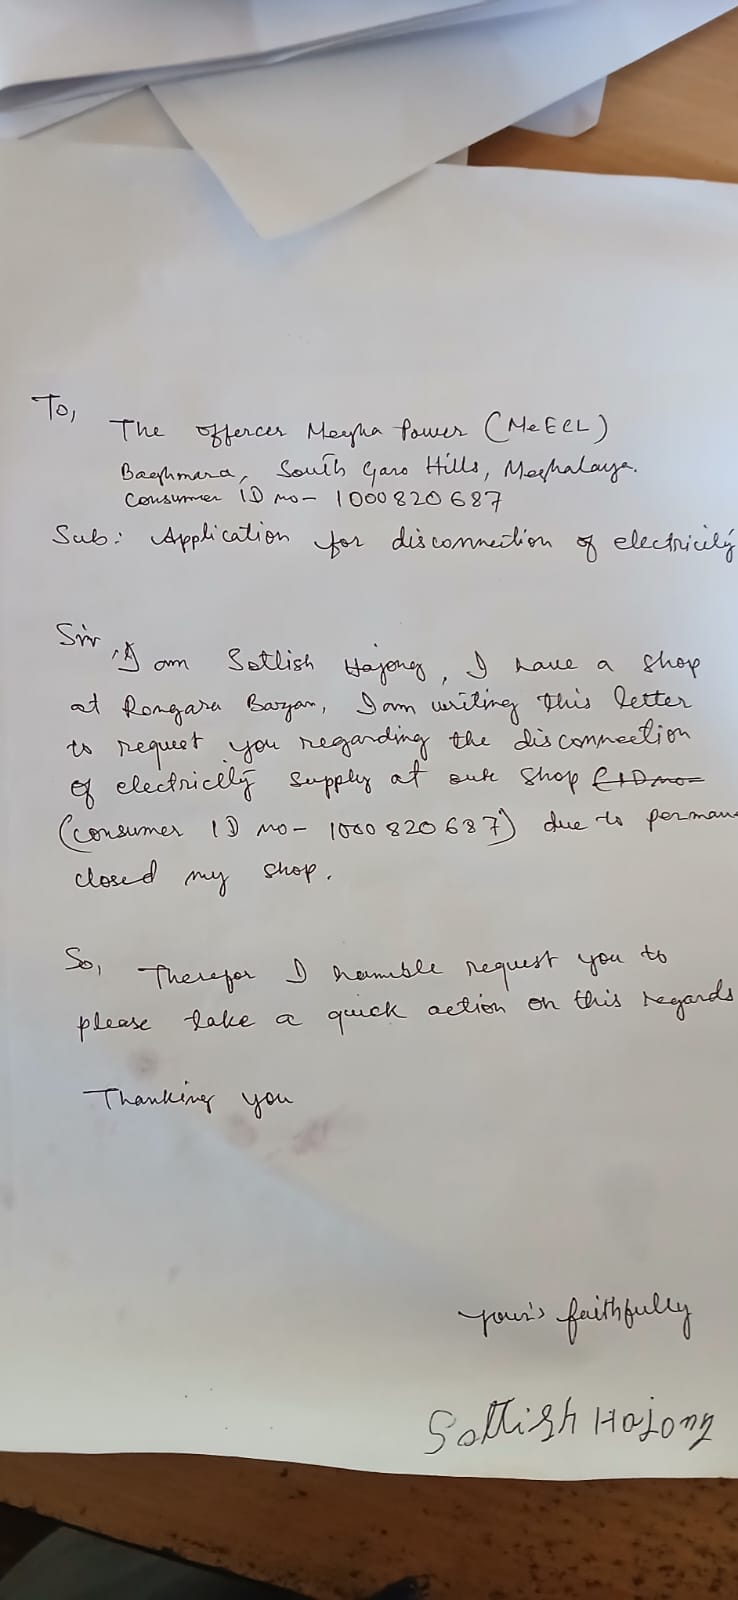 To,
The offercer Megha Power (MeECL)
Baghmara, South Garo Hills, Meghalaya.
Consumer ID no- 1000820687
Sub: Application for disconnection of electricity
Sir, I am Sattish Hajong, I have a shop
at Rongara Bazar, I am writing this letter
to request you regarding the disconnection
of electricity supply at our shop
(consumer ID no- 1000820687) due to perman
closed my shop.
So, Therefor I humble request you to
please take a quick action on this regards
Thanking you
your's faithfully
Sattish Hajong